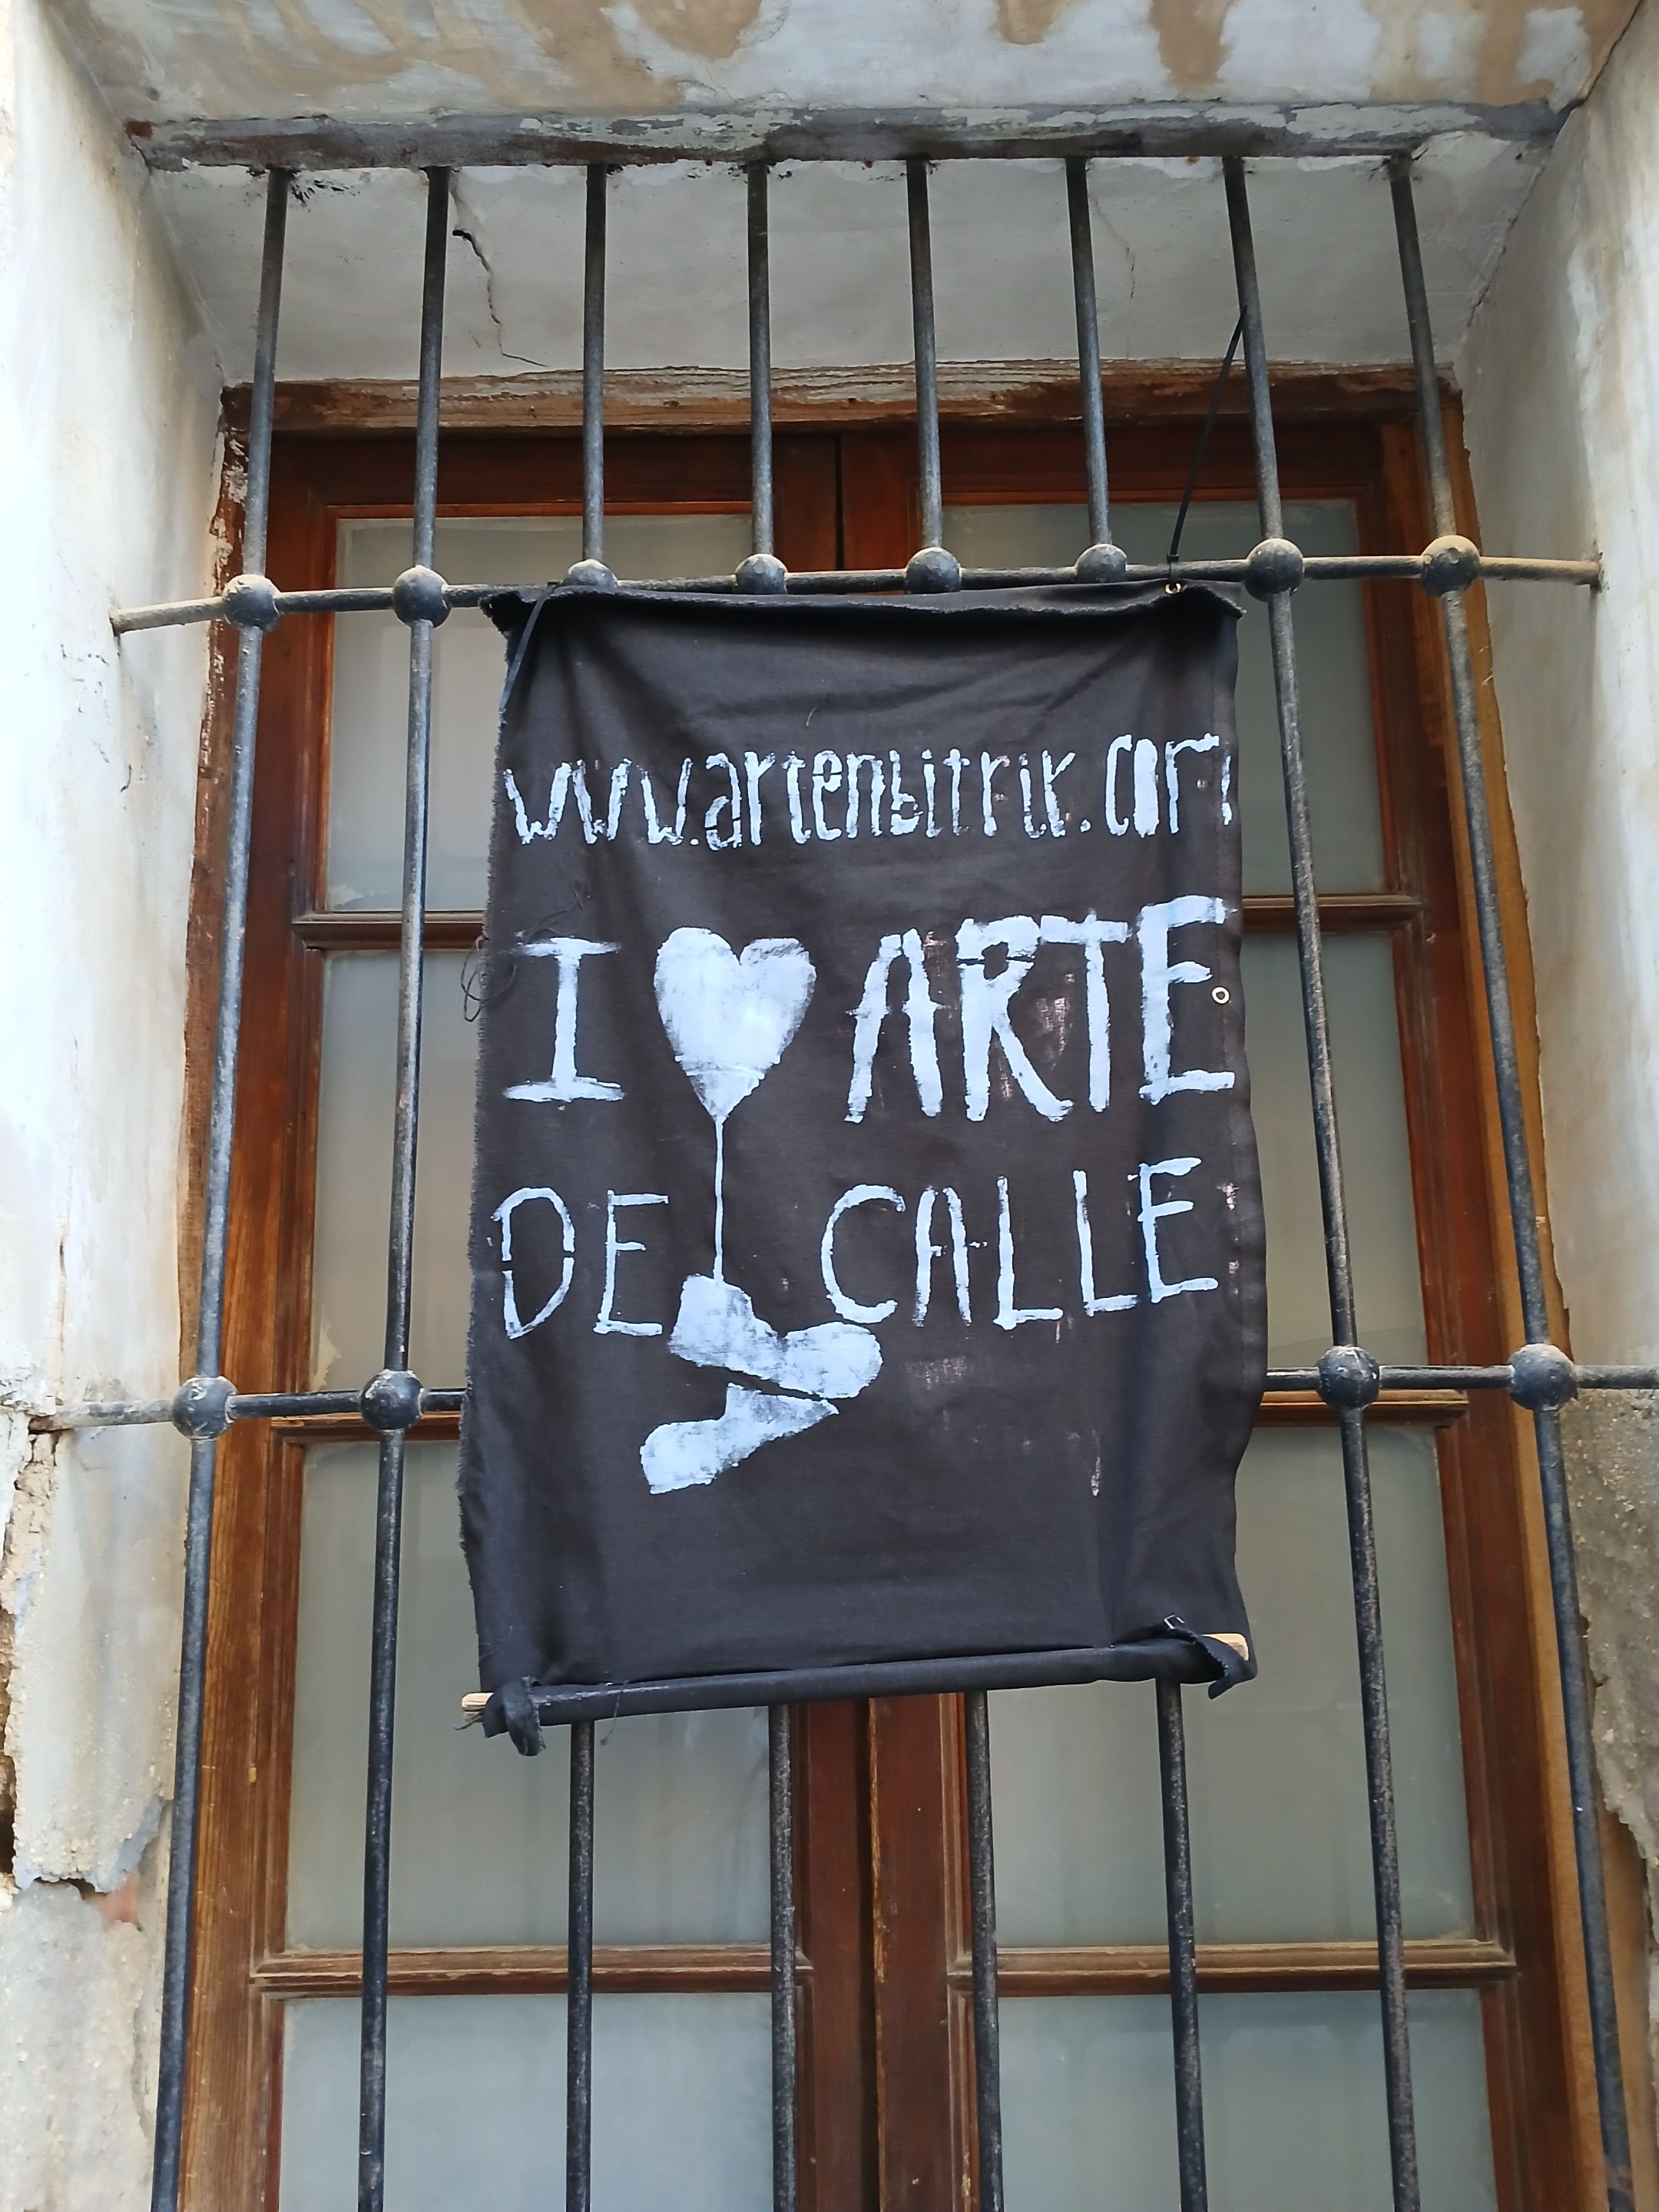 www.artenbitrir.com
I ♥ ARTE
DE CALLE